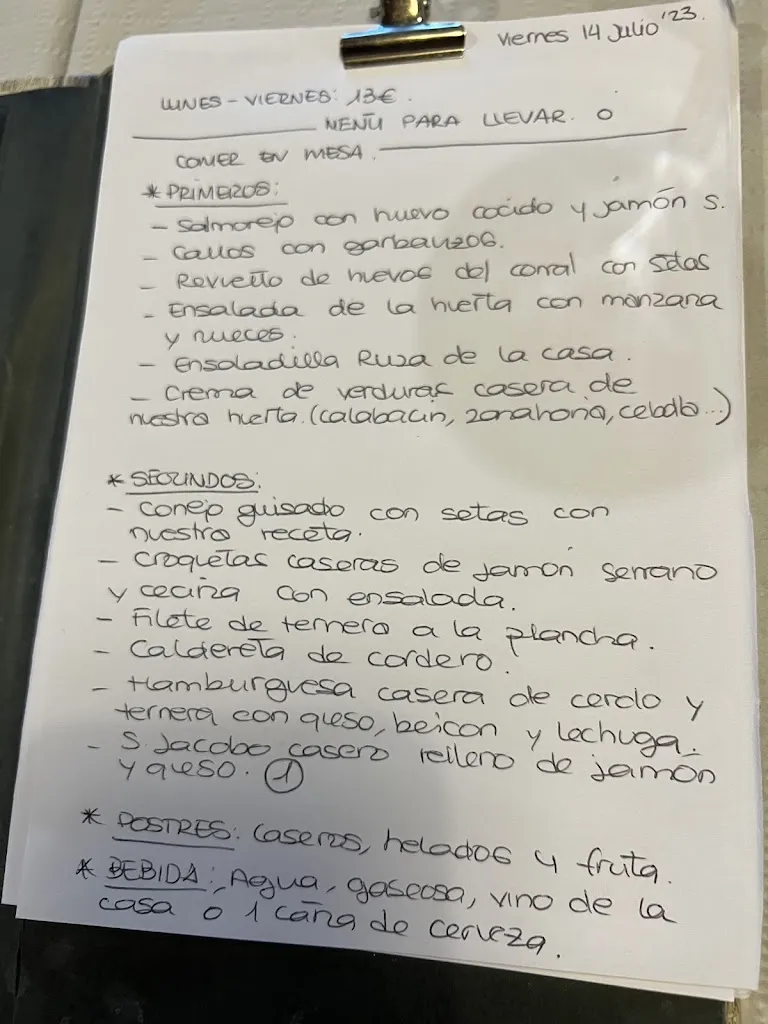 Viernes 14 Julio '23.
LUNES - VIERNES: 13€.
MENÚ PARA LLEVAR. O
COMER EN MESA.
* PRIMEROS:
- Salmorejo con huevo cocido y jamón S.
- Callos con garbanzos.
- Revuelto de huevos del corral con setas
- Ensalada de la huerta con manzana
y nueces.
- Ensaladilla Rusa de la casa.
- Crema de verduras casera de
nuestra huerta. (calabacín, zanahoria, cebolla...)
* SEGUNDOS:
- Conejo guisado con setas con
nuestra receta.
- Croquetas caseras de jamón serrano
y cecina con ensalada.
- Filete de ternera a la plancha.
- Caldereta de cordero.
- Hamburguesa casera de cerdo y
ternera con queso, beicon y lechuga.
- S. Jacobo casero relleno de jamón
y queso. 1
* POSTRES: Caseros, helados y fruta.
* BEBIDA: Agua, gaseosa, vino de la
casa o 1 caña de cerveza.